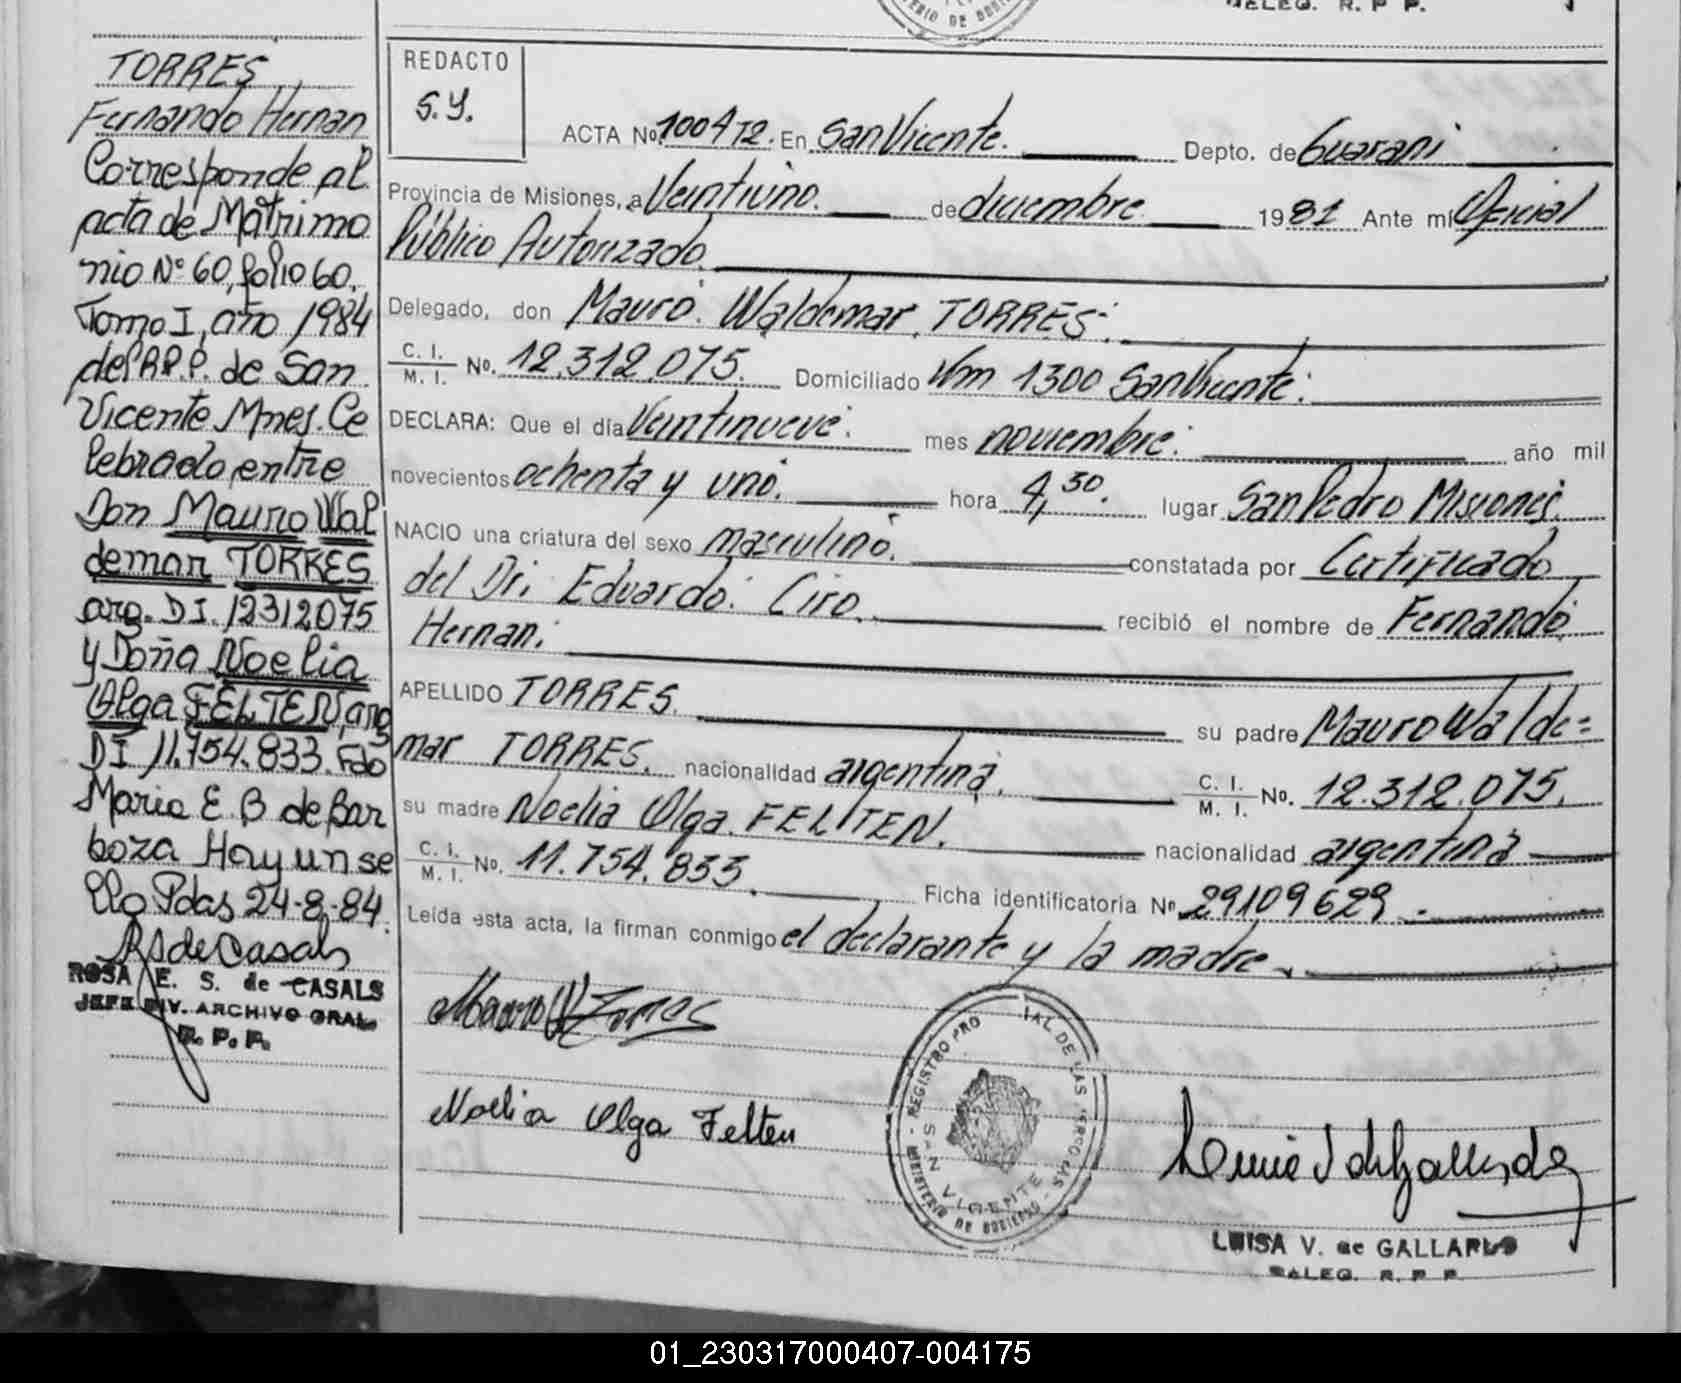 DELEG. R. P. P.
MINISTERIO DE GOBIERNO
TORRES
Fernando Hernan
Corresponde al
acta de Matrimo
nio Nº 60, folio 60.
Tomo I, año 1984
del R.P.P. de San
Vicente Mnes. Ce
lebrado entre
Don Mauro Wal
demar TORRES
arg. D.I. 12312075
y Doña Noelia
Olga FELTEN, arg
DI 11.754.833. Fdo
Maria E. B de Bar
boza Hay un se
llo Pdas 24-8-84.
RS de Casals
ROSA E. S. de CASALS
JEFE DIV. ARCHIVO GRAL.
R. P. P.
REDACTO
S.Y.
ACTA No. 1004 T2. En San Vicente. Depto. de Guarani
Provincia de Misiones, a Veintiuno. de diciembre 1981 Ante mí Oficial
Público Autorizado.
Delegado, don Mauro Waldemar TORRES.
C. I. / M. I. No. 12.312.075. Domiciliado Km 1300 San Vicente.
DECLARA: Que el día Veintinueve. mes noviembre. año mil
novecientos ochenta y uno. hora 4,30. lugar San Pedro Misiones.
NACIO una criatura del sexo masculino. constatada por Certificado
del Dr. Eduardo Ciro. recibió el nombre de Fernando
Hernan.
APELLIDO TORRES. su padre Mauro Walde=
mar TORRES. nacionalidad argentina. C. I. / M. I. No. 12.312.075.
su madre Noelia Olga FELTEN. nacionalidad argentina
C. I. / M. I. No. 11.754.833. Ficha identificatoria Nº 29109629.
Leída esta acta, la firman conmigo el declarante y la madre.
Mauro W Torres
Noelia Olga Felten
REGISTRO PRO IAL DE LAS PERSONAS
SAN VICENTE
MINISTERIO DE GOBIERNO
LUISA V. de GALLARDO
DELEG. R. P. P.
01_230317000407-004175